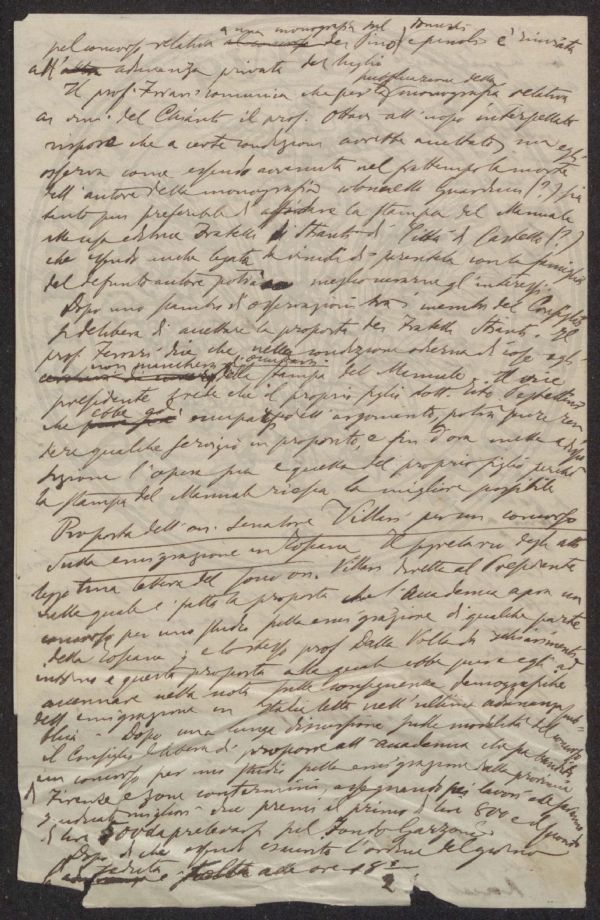 a una monografia sul tomisti
pel concorso relativo al concorso dei Pino e pinoli è rinviata
all'altra adunanza privata del luglio
pubblicazione della
Il prof. Ferrari comunica che per la monografia relativa
ai vini del Chianti il prof. Ottavi all'uopo interpellato
rispose che a certe condizioni avrebbe accettato, ma egli
osserva come essendo avvenuta nel frattempo la morte
dell'autore della monografia colonnello (?) sia
tanto più preferibile di affidare la stampa del Manuale
alla casa editrice Fratelli di Città di Castello (?)
che essendo anche legata da vincoli di parentela con la famiglia
del defunto autore potrà meglio curarne gli interessi.
Dopo uno scambio di osservazioni tra i membri del Consiglio
si delibera di accettare la proposta dei Fratelli. Il
prof. Ferrari dice che nella condizione odierna di cose egli
non mancherà di occuparsi
della stampa del Manuale. Il vice
presidente crede che il proprio figlio dott.
che ebbe già ad occuparsi dell'argomento, potrà pure ren
dere qualche servizio in proposito, e fin d'ora mette a dispo
sizione l'opera sua e quella del proprio figlio perché
la stampa del Manuale riesca la migliore possibile
Proposta dell'on. Senatore Villari per un concorso
sulla emigrazione in Toscana. Il segretario degli atti
legge una lettera del Socio on. Villari diretta al Presidente
nella quale è fatta la proposta che l'Accademia apra un
concorso per uno studio sulla emigrazione di qualche parte
della Toscana; e lo stesso prof. Dalla Volta dà schiarimenti
intorno a questa proposta alla quale ebbe pure egli ad
accennare nella nota sulle conseguenze demografiche
dell'emigrazione in Italia letta nell'ultima adunanza pub
blica. Dopo una lunga discussione sulle modalità del concorso
il Consiglio delibera di proporre all'accademia che sia bandito
un concorso per uno studio sulla emigrazione dalla provincia
di Firenze e zone contermini, assegnando pei lavori che saranno
giudicati migliori due premi il primo di lire 800 e il secondo
di lire 500 da prelevarsi sul Fondo Garzoni.
Dopo di che essendo esaurito l'ordine del giorno
la seduta è tolta a ore 18 ½